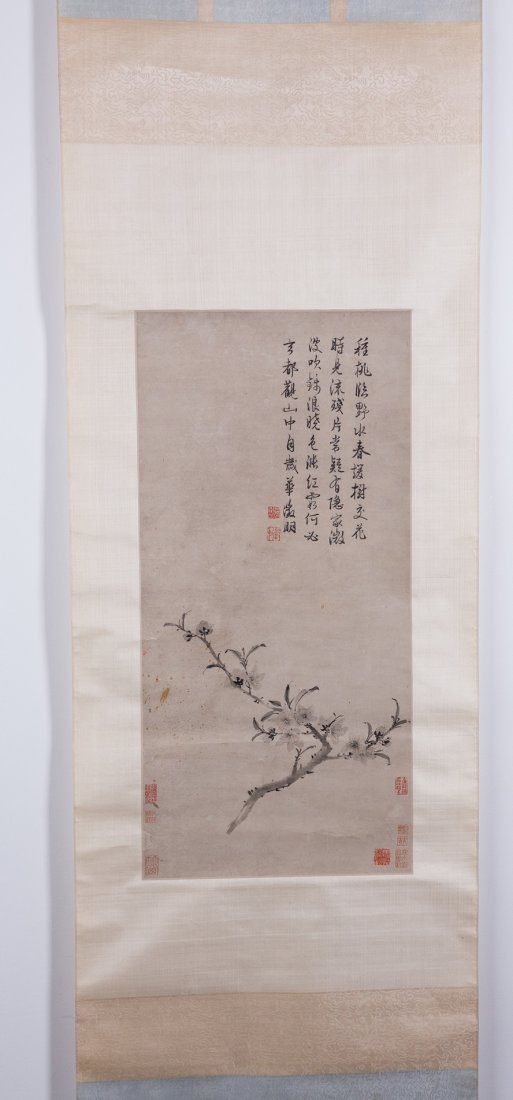 種桃臨野水春暖樹交花
時見流殘片常疑有隱家微
波吹錦浪曉色漲紅霞何必
玄都觀山中自歲華徵明